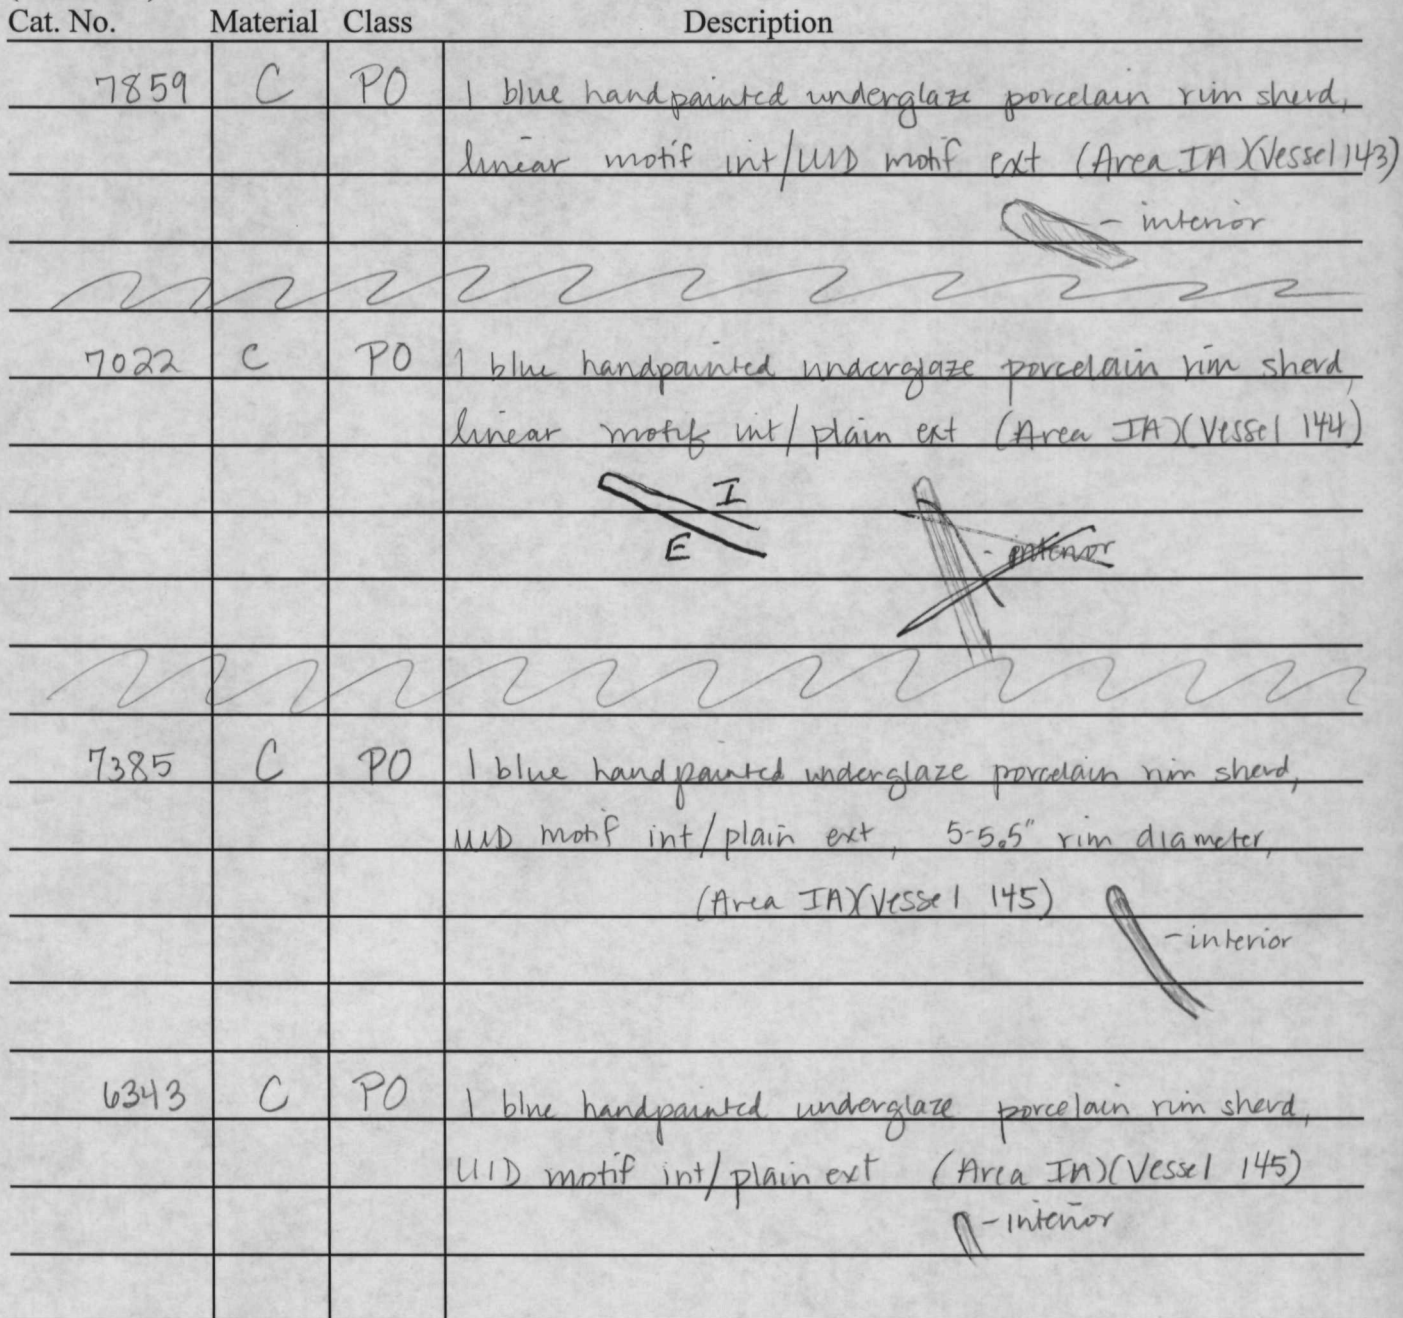 Cat. No. Material Class Description
7859 C PO 1 blue handpainted underglaze porcelain rim sherd,
linear motif int/UID motif ext (Area IA)(Vessel 143)
- interior
7022 C PO 1 blue handpainted underglaze porcelain rim sherd,
linear motif int/plain ext (Area IA)(Vessel 144)
I
E
- interior
7385 C PO 1 blue handpainted underglaze porcelain rim sherd,
UID motif int/plain ext, 5-5.5" rim diameter,
(Area IA)(Vessel 145)
- interior
6343 C PO 1 blue handpainted underglaze porcelain rim sherd,
UID motif int/plain ext (Area IA)(Vessel 145)
- interior